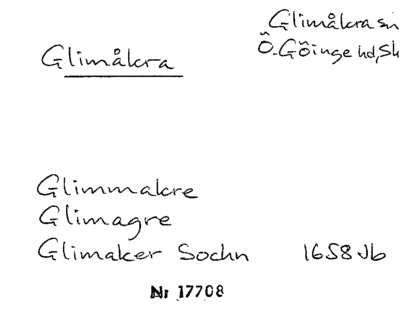 Glimåkra sn
Ö. Göinge hd, Sk
Glimåkra
Glimmakre
Glimagre
Glimaker Sochn 1658 Jb
Nr 17708